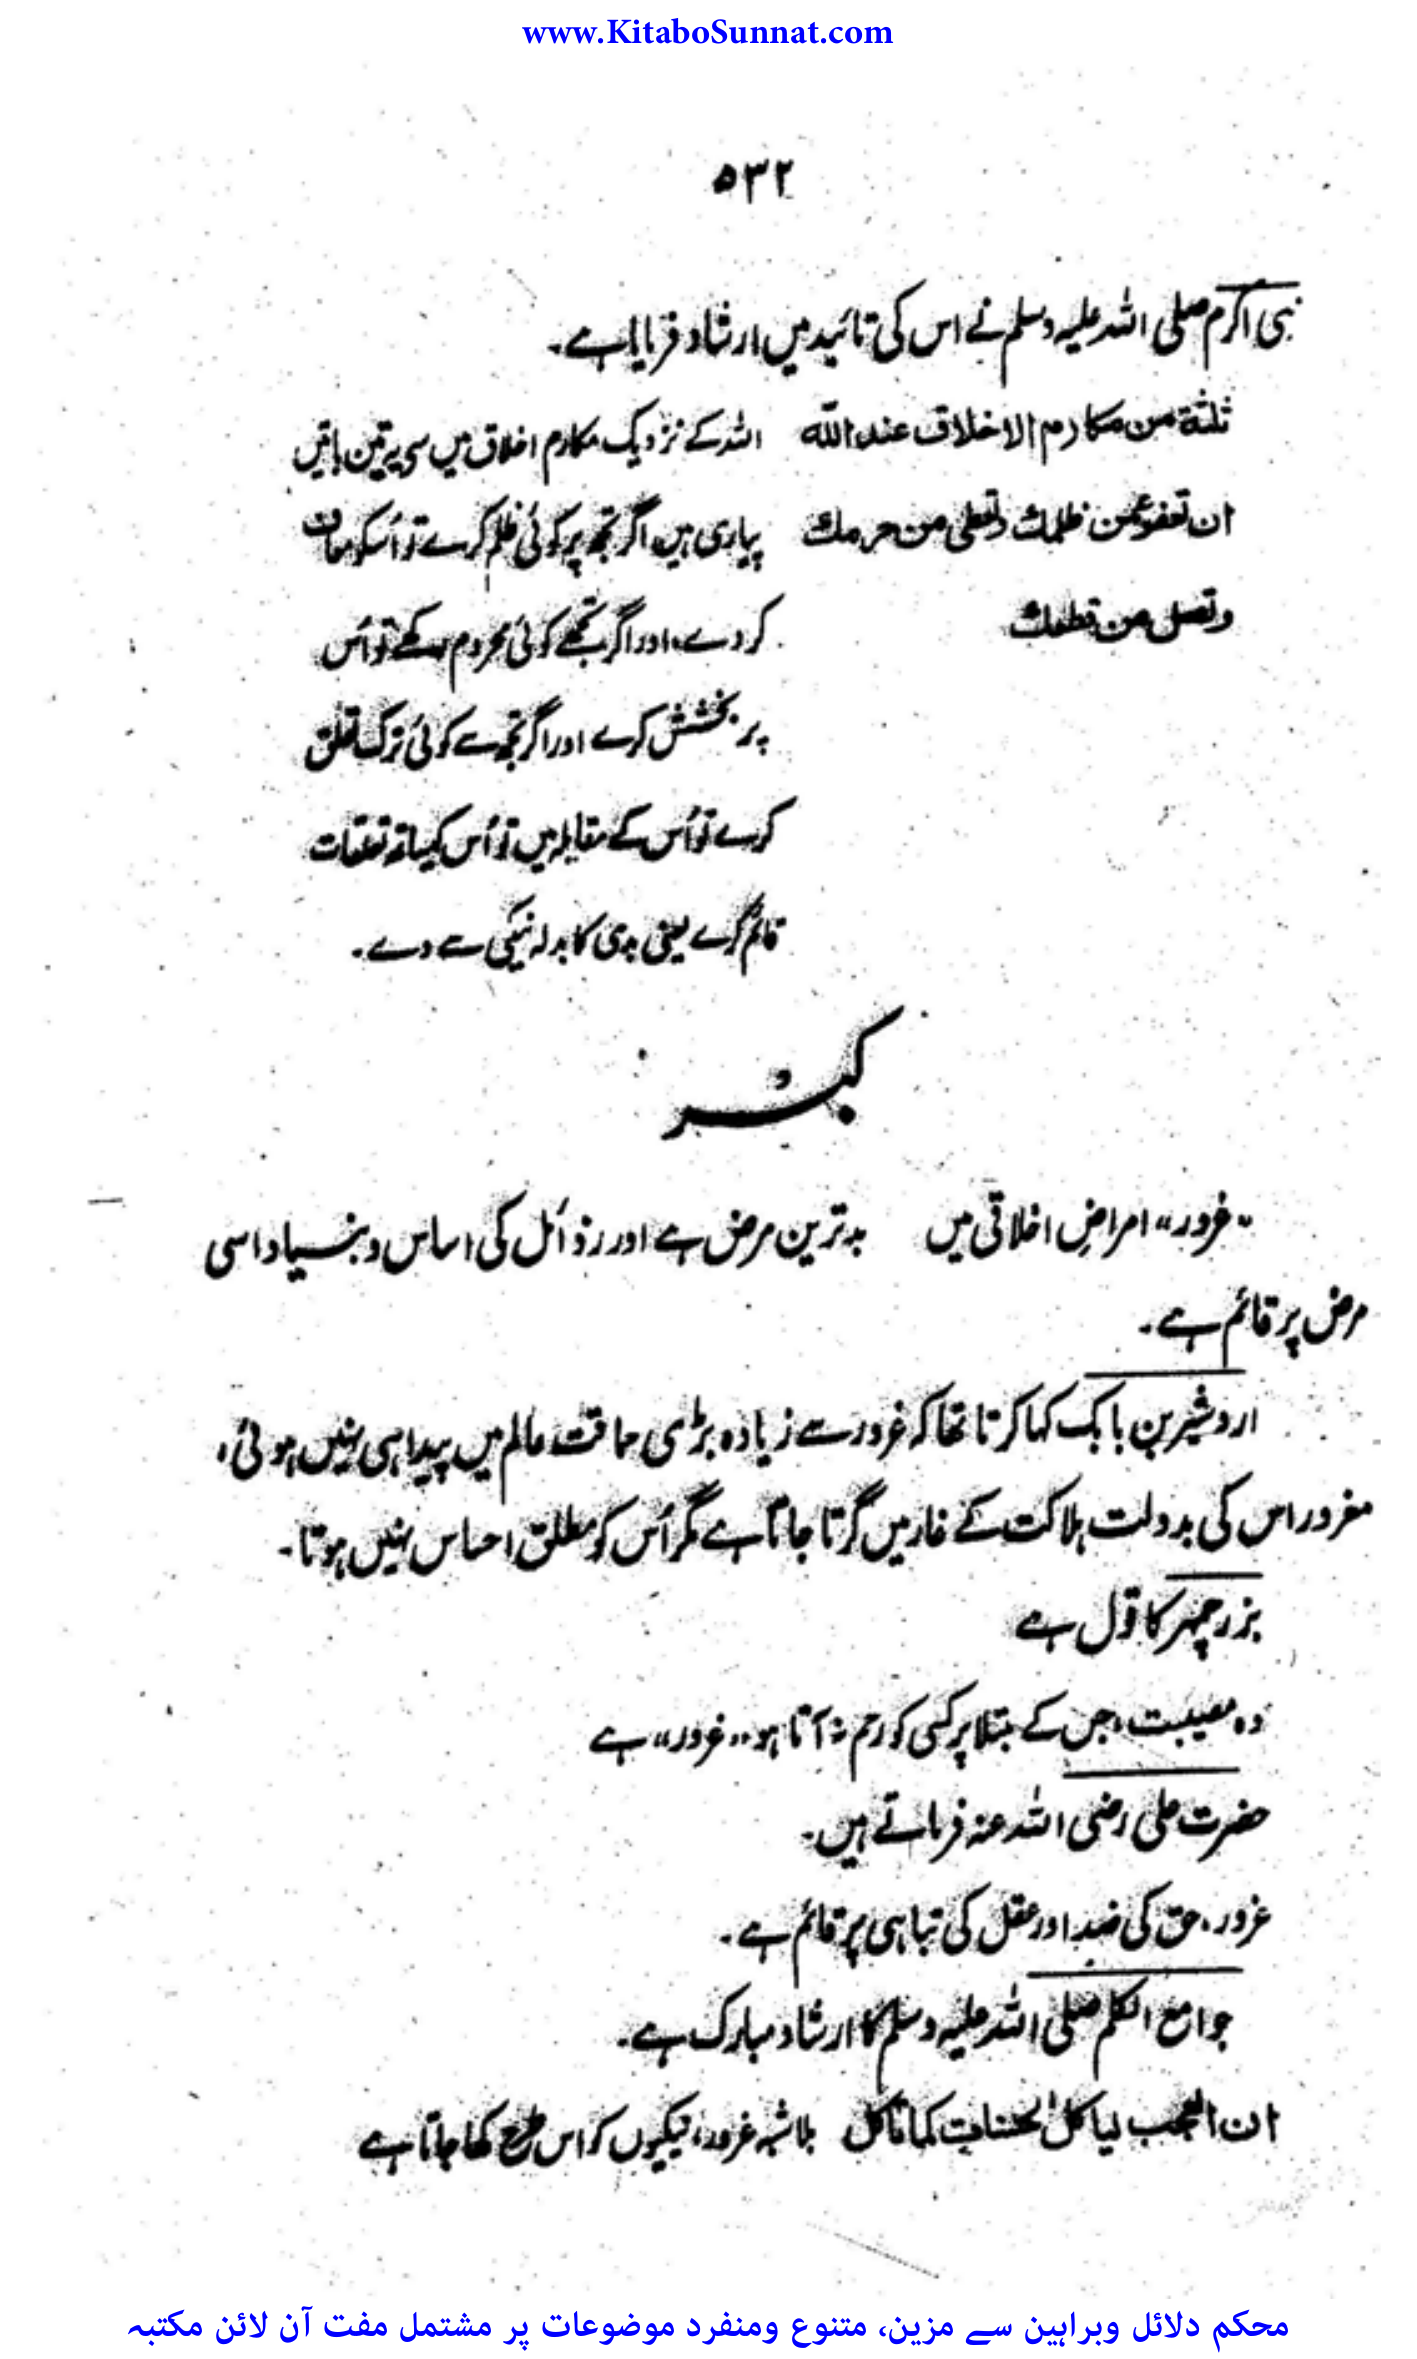 www.KitaboSunnat.com
۵۳۲
نبی اکرم صلی اللہ علیہ وسلم نے اس کی تائید میں ارشاد فرمایا ہے۔
ثلثة من مكارم الاخلاق عند الله اللہ کے نزدیک مکارم اخلاق میں سے یہ تین باتیں
ان تعفو عمن ظلمك وتعطى من حرمك پیاری ہیں، اگر تجھ پر کوئی ظلم کرے تو اُسکو معاف
وتصل من قطعك کر دے، اور اگر تجھے کوئی محروم رکھے تو اُس
پر بخشش کرے اور اگر تجھ سے کوئی ترک تعلق
کرے تو اُس کے مقابلہ میں تو اُس کیساتھ تعلقات
قائم کرے یعنی بدی کا بدلہ نیکی سے دے۔
کبر
”غرور“ امراضِ اخلاقی میں بدترین مرض ہے اور رذائل کی اساس و بنیاد اسی
مرض پر قائم ہے۔
اردشیر بن بابک کہا کرتا تھا کہ غرور سے زیادہ بڑی حماقت عالم میں پیدا ہی نہیں ہوئی،
مغرور اس کی بدولت ہلاکت کے غار میں گرتا جاتا ہے مگر اُس کو مطلق احساس نہیں ہوتا۔
بزرجمہر کا قول ہے
وہ مصیبت، جس کے مبتلا پر کسی کو رحم نہ آتا ہو ”غرور“ ہے
حضرت علی رضی اللہ عنہ فرماتے ہیں۔
غرور، حق کی ضد اور عقل کی تباہی پر قائم ہے۔
جوامع الکلم صلی اللہ علیہ وسلم کا ارشاد مبارک ہے۔
ان العجب لياكل الحسنات كما تاكل بلا شبہ غرور، نیکیوں کو اس طرح کھا جاتا ہے
محکم دلائل وبراہین سے مزین، متنوع ومنفرد موضوعات پر مشتمل مفت آن لائن مکتبہ